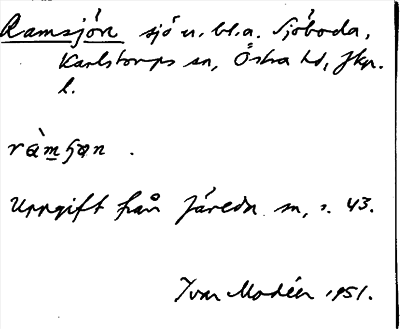 Ramsjön sjö n. bl.a. Sjöboda,
Karlstorps sn, Östra hd, Jkp.
l.
ràmʃɷn .
Uppgift från Järeda sn, s. 43.
Ivar Modéer 1951.